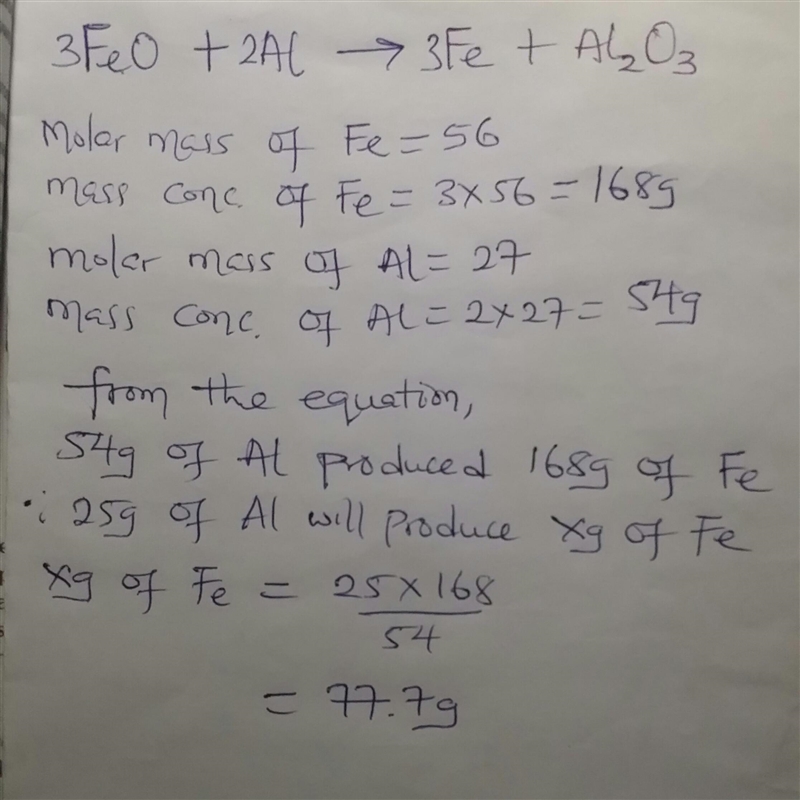 3FeO + 2Al → 3Fe + Al₂O₃
Molar mass of Fe = 56
mass conc. of Fe = 3×56 = 168g
molar mass of Al = 27
mass conc. of Al = 2×27 = 54g
from the equation,
54g of Al produced 168g of Fe
∴ 25g of Al will produce xg of Fe
xg of Fe = 25×168
54
= 77.7g